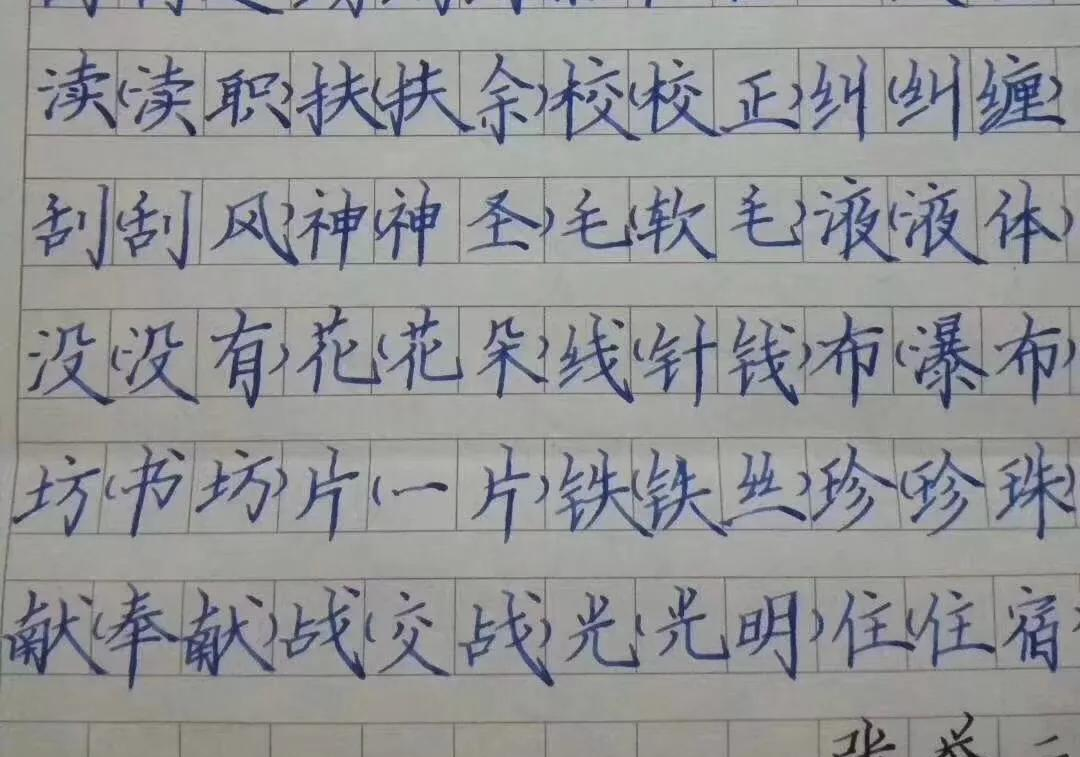 渎(渎职)扶(扶余)校(校正)纠(纠缠)
刮(刮风)神(神圣)毛(软毛)液(液体)
没(没有)花(花朵)线(针钱)布(瀑布)
坊(书坊)片(一片)铁(铁丝)珍(珍珠)
献(奉献)战(交战)光(光明)住(住宿)